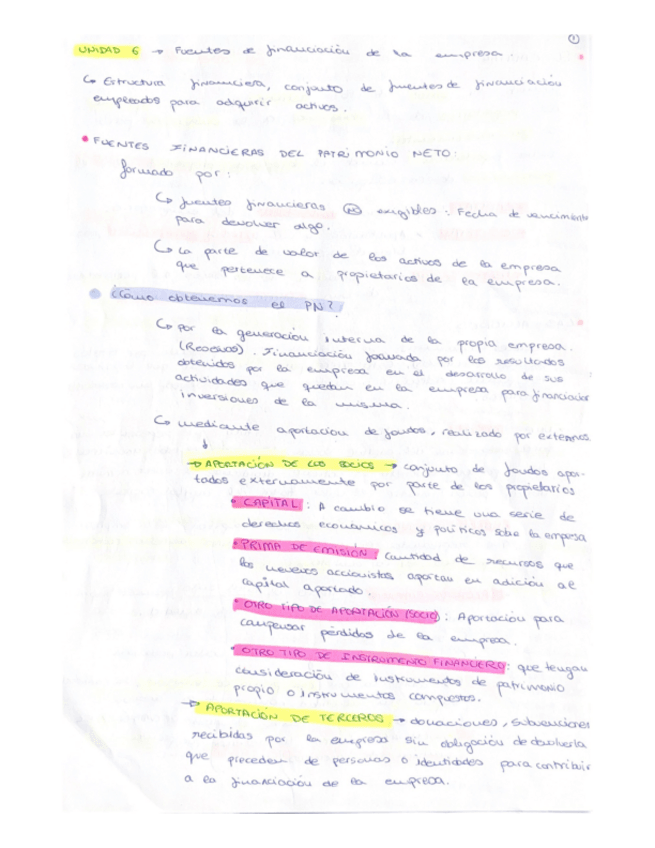 1
UNIDAD 6 → Fuentes de financiación de la empresa.
↳ Estructura financiera, conjunto de fuentes de financiación
empleados para adquirir activos.
• FUENTES FINANCIERAS DEL PATRIMONIO NETO:
formado por:
↳ fuentes financieras NO exigibles: Fecha de vencimiento
para devolver algo.
↳ La parte de valor de los activos de la empresa
que pertenece a propietarios de la empresa.
¿Cómo obtenemos el PN?
↳ por la generación interna de la propia empresa.
(Reservas). Financiación formada por los resultados
obtenidos por la empresa en el desarrollo de sus
actividades que quedan en la empresa para financiar
inversiones de la misma.
↳ mediante aportación de fondos, realizado por externos
↓
→ APORTACIÓN DE LOS SOCIOS → conjunto de fondos apor-
tados externamente por parte de los propietarios
• CAPITAL: A cambio se tiene una serie de
derechos económicos y políticos sobre la empresa
• PRIMA DE EMISIÓN: Cantidad de recursos que
los nuevos accionistas aportan en adición al
capital aportado.
• OTRO TIPO DE APORTACIÓN (SOCIO): Aportación para
compensar pérdidas de la empresa.
• OTRO TIPO DE INSTRUMENTO FINANCIERO: que tengan
consideración de instrumentos de patrimonio
propio o instrumentos compuestos.
→ APORTACIÓN DE TERCEROS → donaciones, subvenciones
recibidas por la empresa sin obligación de devolverla
que preceden de personas o identidades para contribuir
a la financiación de la empresa.